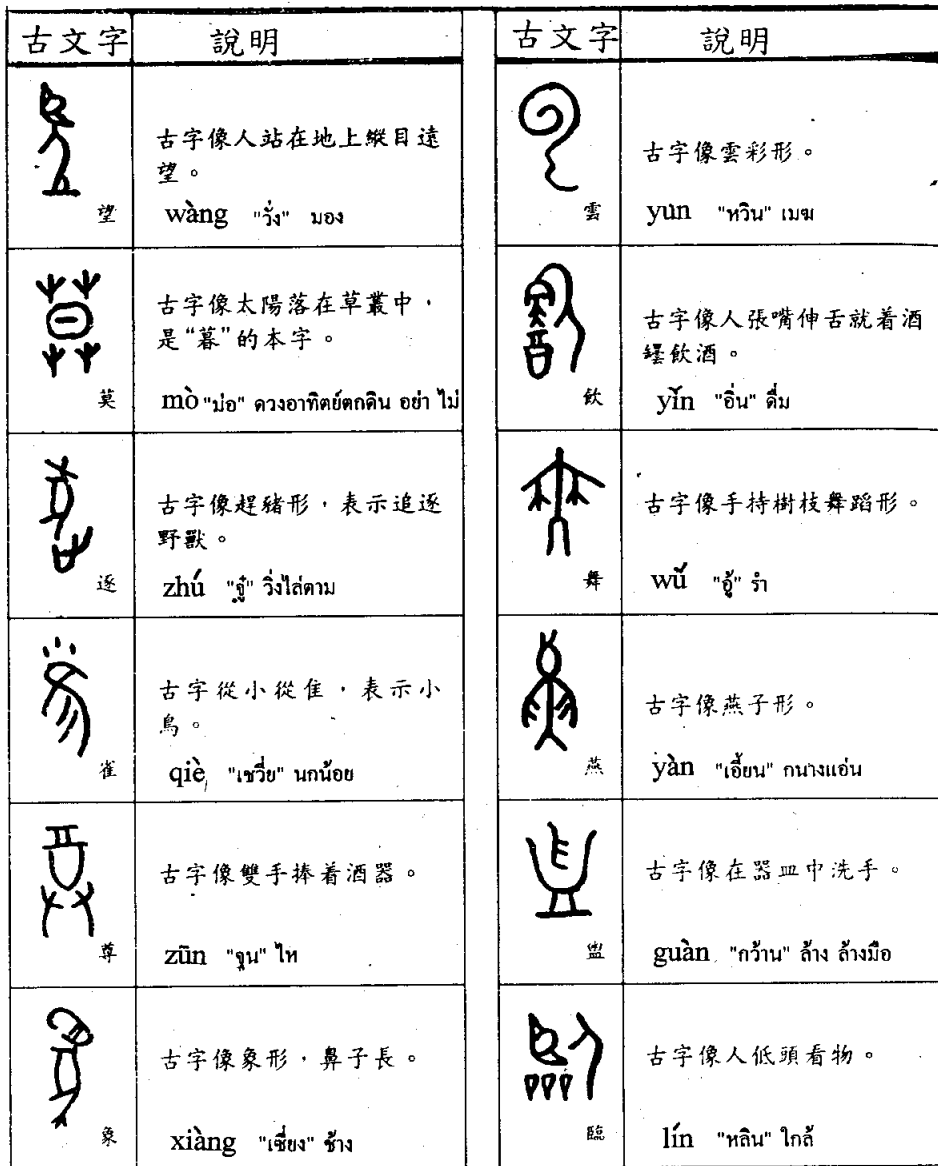 古文字 說明
望
古字像人站在地上縱目遠
望。
wàng "วั่ง" มอง
莫
古字像太陽落在草叢中，
是“暮”的本字。
mò "ม่อ" ดวงอาทิตย์ตกดิน อย่า ไม่
逐
古字像趕豬形，表示追逐
野獸。
zhú "จู๋" วิ่งไล่ตาม
雀
古字從小從隹，表示小
鳥。
qiè "เชวี่ย" นกน้อย
尊
古字像雙手捧着酒器。
zūn "จูน" ไห
象
古字像象形，鼻子長。
xiàng "เซี่ยง" ช้าง
古文字 說明
雲
古字像雲彩形。
yun "หวิน" เมฆ
飲
古字像人張嘴伸舌就着酒
罎飲酒。
yǐn "อิ่น" ดื่ม
舞
古字像手持樹枝舞蹈形。
wǔ "อู้" รำ
燕
古字像燕子形。
yàn "เอี้ยน" กนางแอ่น
盥
古字像在器皿中洗手。
guàn "กว้าน" ล้าง ล้างมือ
臨
古字像人低頭看物。
lín "หลิน" ใกล้